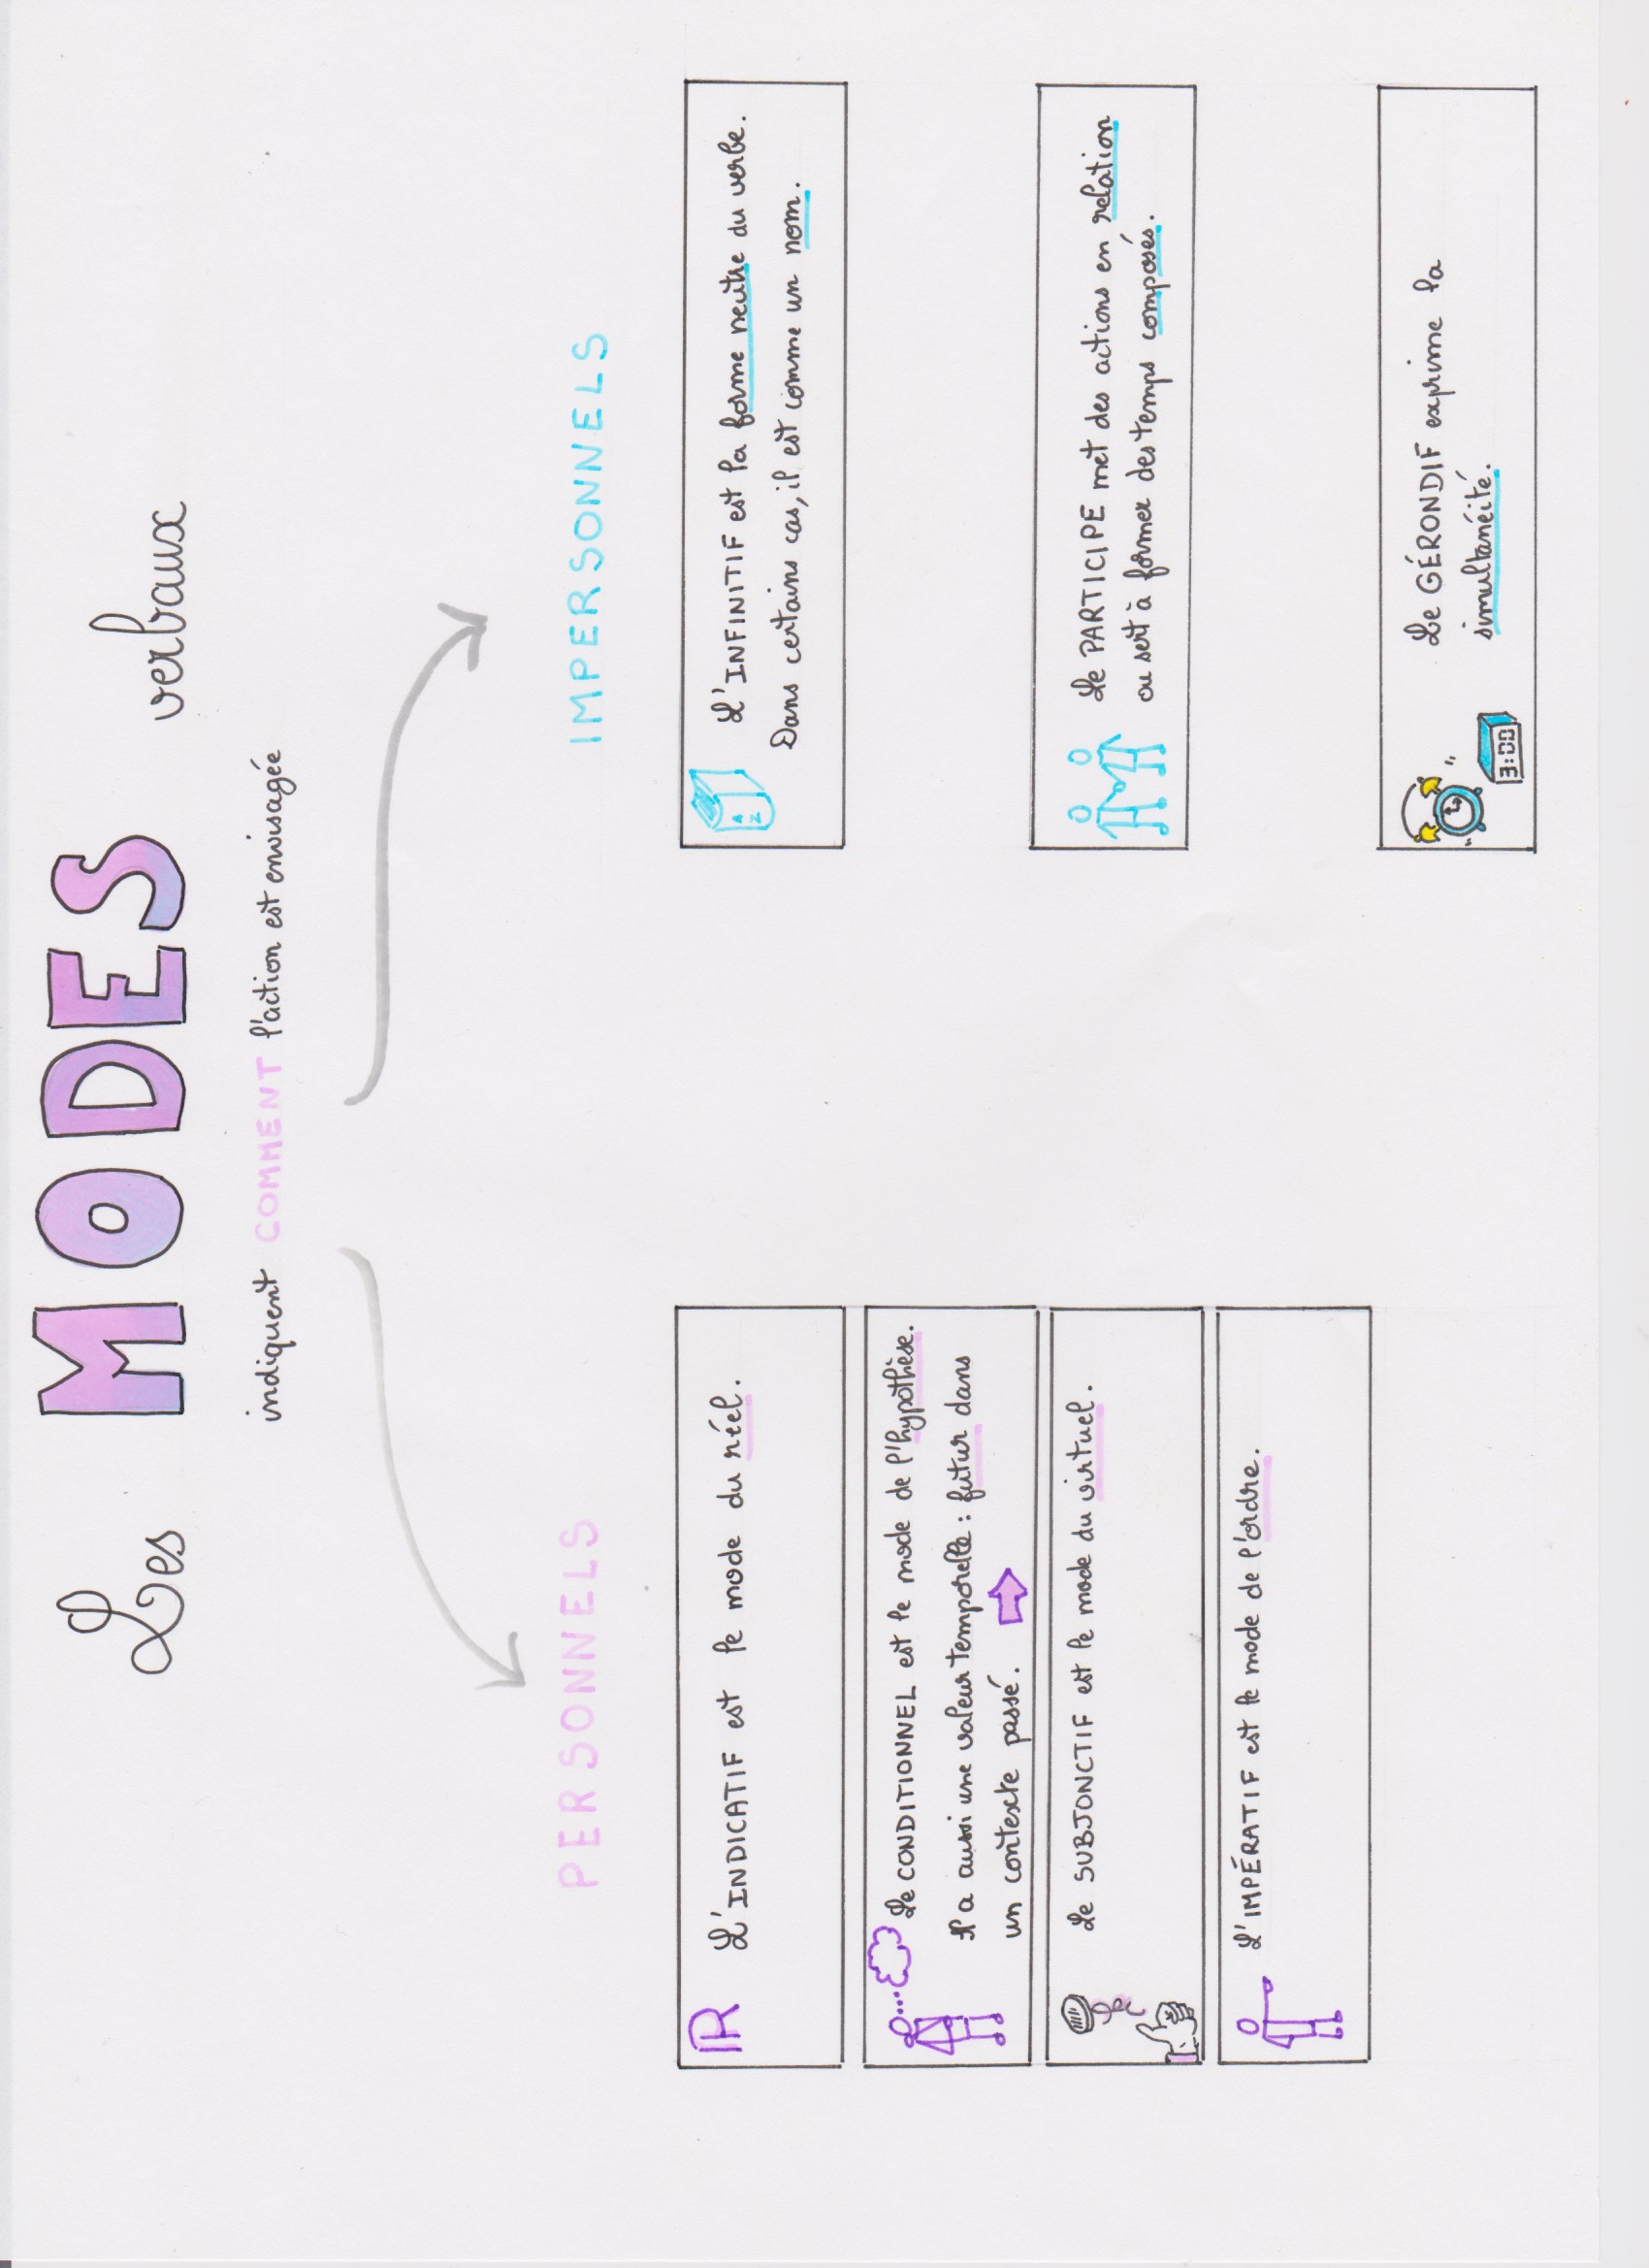 Les MODES verbaux
indiquent COMMENT l'action est envisagée
PERSONNELS
R
L'INDICATIF est le mode du réel.
Le CONDITIONNEL est le mode de l'hypothèse.
Il a aussi une valeur temporelle : futur dans
un contexte passé.
Le SUBJONCTIF est le mode du virtuel.
L'IMPÉRATIF est le mode de l'ordre.
IMPERSONNELS
A
Z
L'INFINITIF est la forme neutre du verbe.
Dans certains cas, il est comme un nom.
Le PARTICIPE met des actions en relation
ou sert à former des temps composés.
Le GÉRONDIF exprime la
simultanéité.
3:00